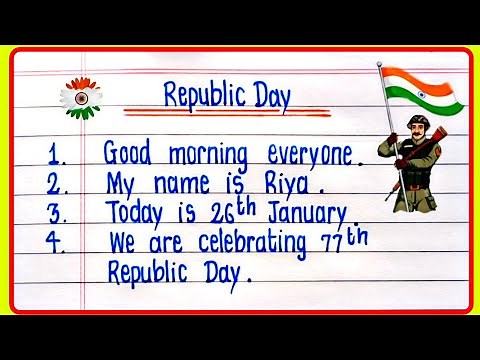 Republic Day
1. Good morning everyone.
2. My name is Riya.
3. Today is 26th January.
4. We are celebrating 77th
Republic Day.